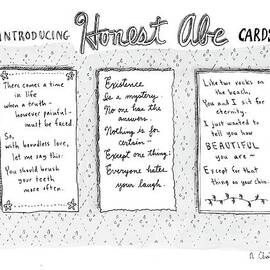 INTRODUCING Honest Abe CARDS
There comes a time
in life
when a truth -
however painful -
must be faced.
So,
with boundless love,
let me say this:
You should brush
your teeth
more often.
Existence
Is a mystery.
No one has the
answers.
Nothing is for
certain -
Except one thing:
Everyone hates
your laugh.
Like two rocks on
the beach,
You and I sit for
eternity.
I just wanted to
tell you how
BEAUTIFUL
you are -
Except for that
thing on your chin.